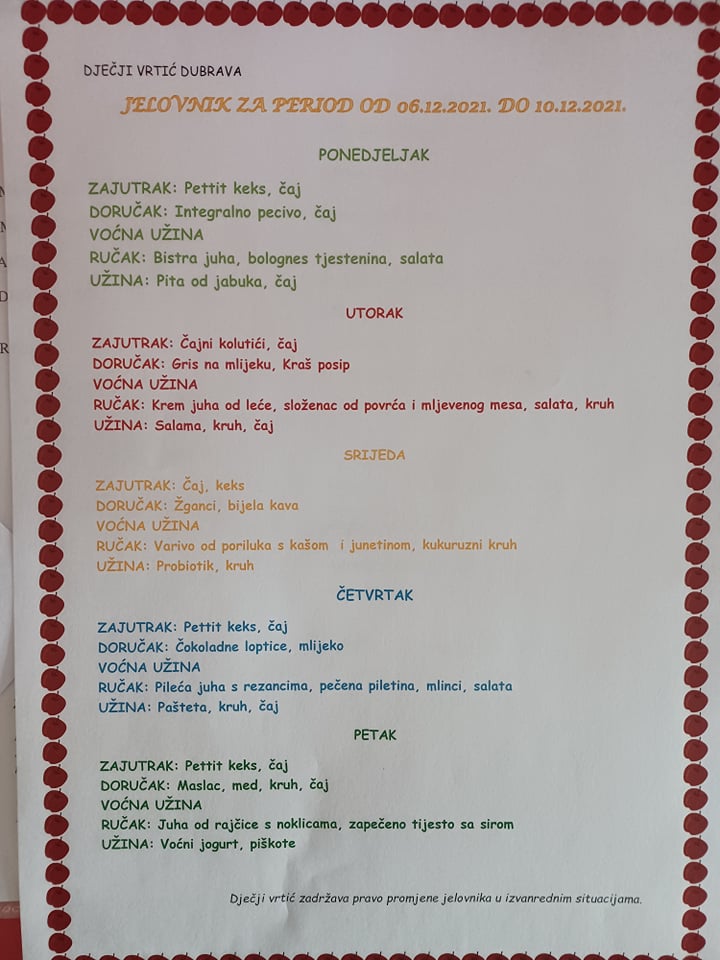 DJEČJI VRTIĆ DUBRAVA
JELOVNIK ZA PERIOD OD 06.12.2021. DO 10.12.2021.
PONEDJELJAK
ZAJUTRAK: Pettit keks, čaj
DORUČAK: Integralno pecivo, čaj
VOĆNA UŽINA
RUČAK: Bistra juha, bolognes tjestenina, salata
UŽINA: Pita od jabuka, čaj
UTORAK
ZAJUTRAK: Čajni kolutići, čaj
DORUČAK: Gris na mlijeku, Kraš posip
VOĆNA UŽINA
RUČAK: Krem juha od leće, složenac od povrća i mljevenog mesa, salata, kruh
UŽINA: Salama, kruh, čaj
SRIJEDA
ZAJUTRAK: Čaj, keks
DORUČAK: Žganci, bijela kava
VOĆNA UŽINA
RUČAK: Varivo od poriluka s kašom i junetinom, kukuruzni kruh
UŽINA: Probiotik, kruh
ČETVRTAK
ZAJUTRAK: Pettit keks, čaj
DORUČAK: Čokoladne loptice, mlijeko
VOĆNA UŽINA
RUČAK: Pileća juha s rezancima, pečena piletina, mlinci, salata
UŽINA: Pašteta, kruh, čaj
PETAK
ZAJUTRAK: Pettit keks, čaj
DORUČAK: Maslac, med, kruh, čaj
VOĆNA UŽINA
RUČAK: Juha od rajčice s noklicama, zapečeno tijesto sa sirom
UŽINA: Voćni jogurt, piškote
Dječji vrtić zadržava pravo promjene jelovnika u izvanrednim situacijama.